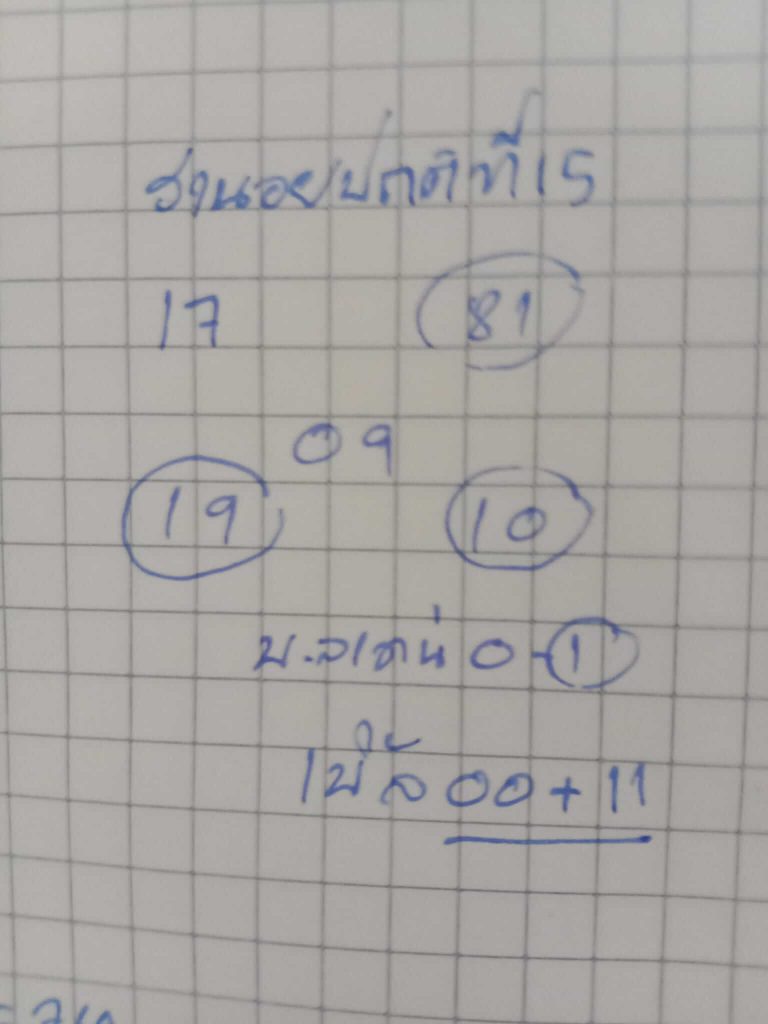 ฮานอยปกติที่ 15
17 81
09
19 10
น.ล่าง 0-1
เบิ้ล 00+11